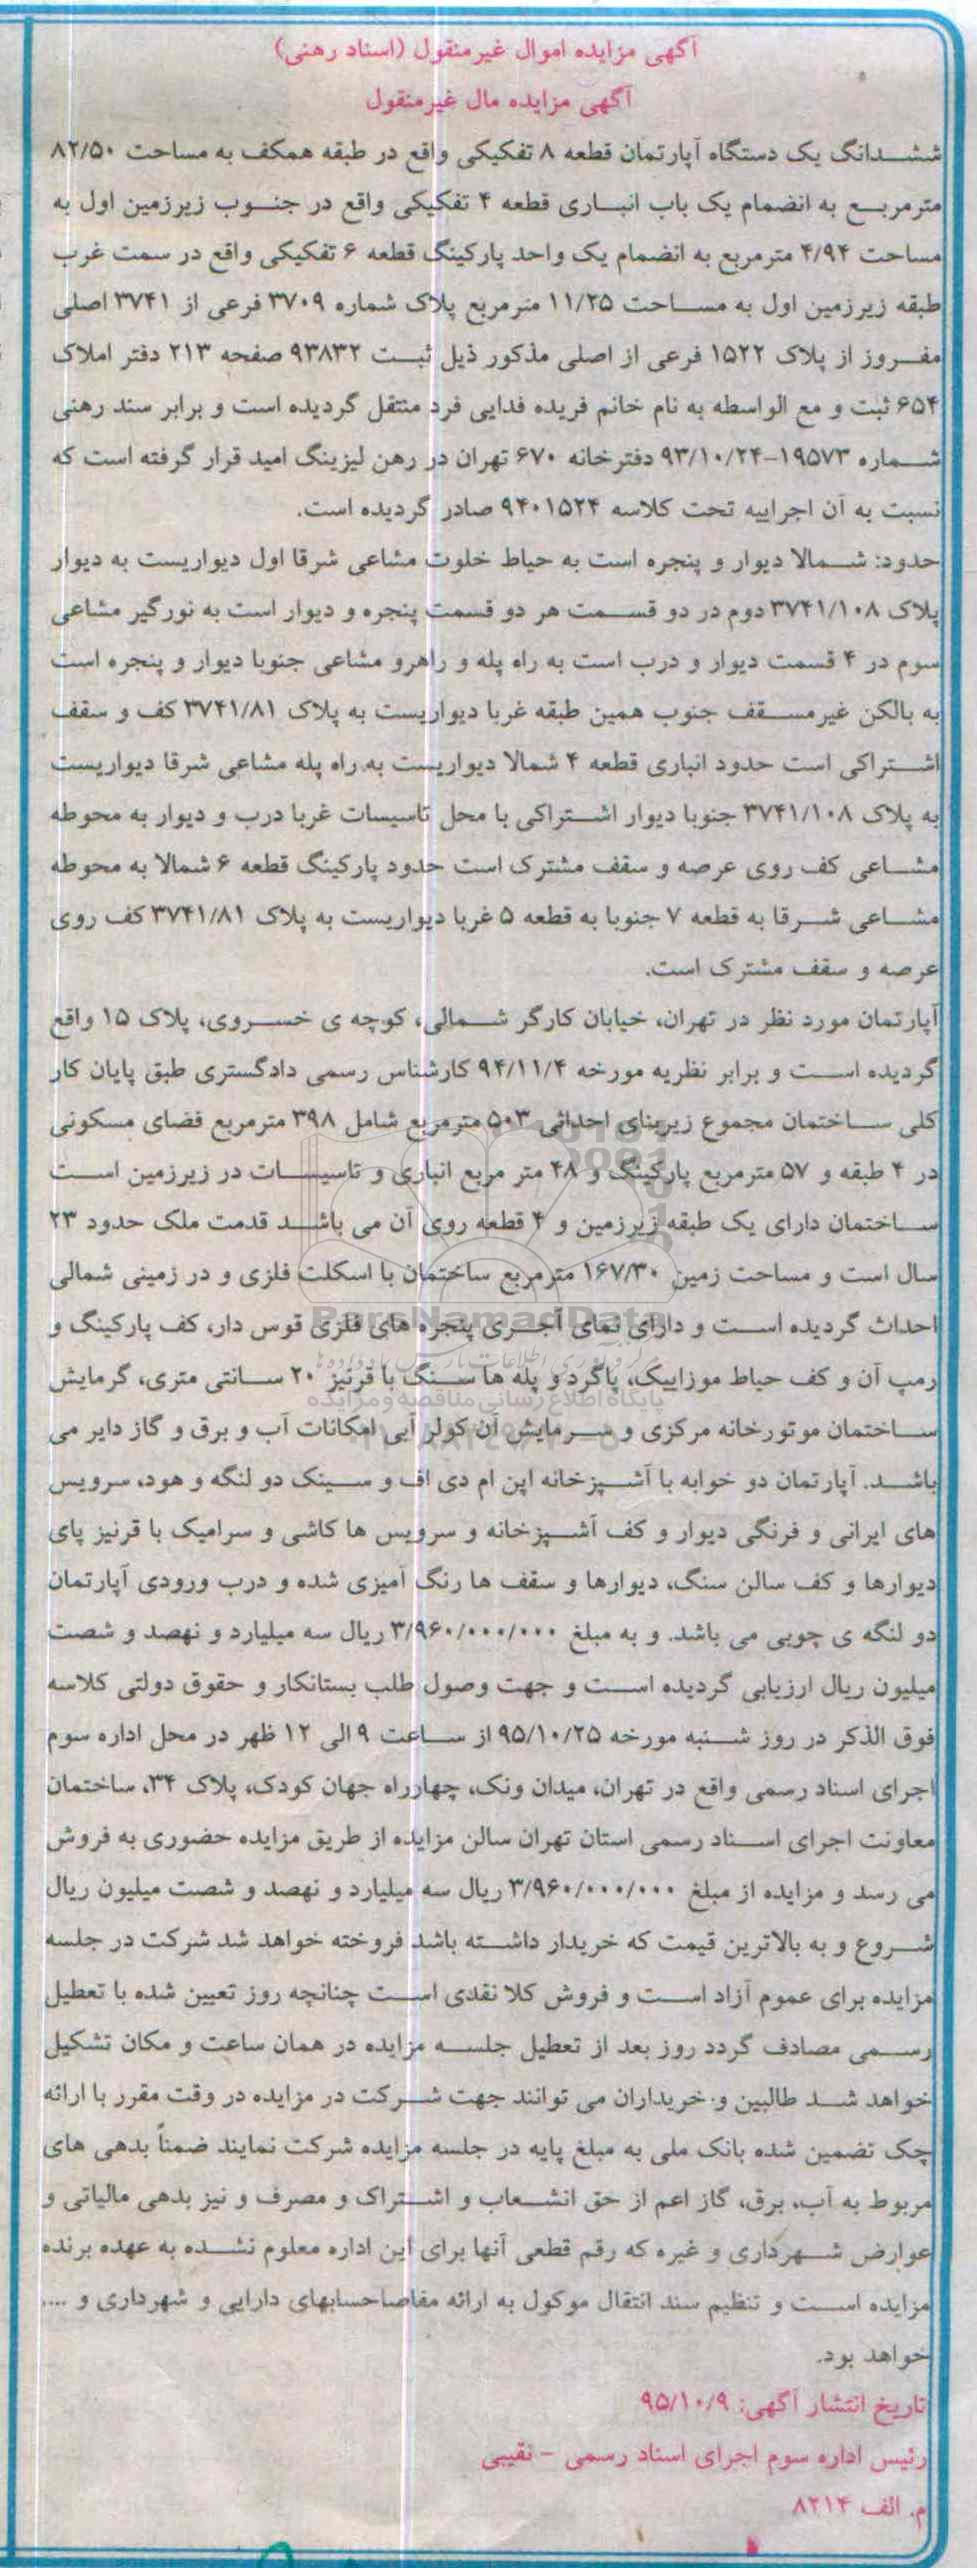 آگهی مزایده اموال غیرمنقول (اسناد رهنی)
آگهی مزایده مال غیرمنقول
ششدانگ یک دستگاه آپارتمان قطعه ۸ تفکیکی واقع در طبقه همکف به مساحت ۸۲/۵۰
مترمربع به انضمام یک باب انباری قطعه ۴ تفکیکی واقع در جنوب زیرزمین اول به
مساحت ۴/۹۴ مترمربع به انضمام یک واحد پارکینگ قطعه ۶ تفکیکی واقع در سمت غرب
طبقه زیرزمین اول به مساحت ۱۱/۲۵ مترمربع پلاک شماره ۳۷۰۹ فرعی از ۳۷۴۱ اصلی
مفروز از پلاک ۱۵۲۲ فرعی از اصلی مذکور ذیل ثبت ۹۳۸۳۲ صفحه ۲۱۳ دفتر املاک
۶۵۴ ثبت و مع الواسطه به نام خانم فریده فدایی فرد منتقل گردیده است و برابر سند رهنی
شماره ۱۹۵۷۳-۹۳/۱۰/۲۴ دفترخانه ۶۷۰ تهران در رهن لیزینگ امید قرار گرفته است که
نسبت به آن اجراییه تحت کلاسه ۹۴۰۱۵۲۴ صادر گردیده است.
حدود: شمالا دیوار و پنجره است به حیاط خلوت مشاعی شرقا اول دیواریست به دیوار
پلاک ۳۷۴۱/۱۰۸ دوم در دو قسمت هر دو قسمت پنجره و دیوار است به نورگیر مشاعی
سوم در ۴ قسمت دیوار و درب است به راه پله و راهرو مشاعی جنوبا دیوار و پنجره است
به بالکن غیرمسقف جنوب همین طبقه غربا دیواریست به پلاک ۳۷۴۱/۸۱ کف و سقف
اشتراکی است حدود انباری قطعه ۴ شمالا دیواریست به راه پله مشاعی شرقا دیواریست
به پلاک ۳۷۴۱/۱۰۸ جنوبا دیوار اشتراکی با محل تاسیسات غربا درب و دیوار به محوطه
مشاعی کف روی عرصه و سقف مشترک است حدود پارکینگ قطعه ۶ شمالا به محوطه
مشاعی شرقا به قطعه ۷ جنوبا به قطعه ۵ غربا دیواریست به پلاک ۳۷۴۱/۸۱ کف روی
عرصه و سقف مشترک است.
آپارتمان مورد نظر در تهران، خیابان کارگر شمالی، کوچه ی خسروی، پلاک ۱۵ واقع
گردیده است و برابر نظریه مورخه ۹۴/۱۱/۴ کارشناس رسمی دادگستری طبق پایان کار
کلی ساختمان مجموع زیربنای احداثی ۵۰۳ مترمربع شامل ۳۹۸ مترمربع فضای مسکونی
در ۴ طبقه و ۵۷ مترمربع پارکینگ و ۴۸ متر مربع انباری و تاسیسات در زیرزمین است
ساختمان دارای یک طبقه زیرزمین و ۴ قطعه روی آن می باشد قدمت ملک حدود ۲۳
سال است و مساحت زمین ۱۶۷/۳۰ مترمربع ساختمان با اسکلت فلزی و در زمینی شمالی
احداث گردیده است و دارای نمای آجری پنجره های فلزی قوس دار، کف پارکینگ و
ParsNamadData
رمپ آن و کف حیاط موزاییک، پاگرد و پله ها سنگ با قرنیز ۲۰ سانتی متری، گرمایش
پایگاه اطلاع رسانی مناقصه و مزایده
ساختمان موتورخانه مرکزی و سرمایش آن کولر آبی امکانات آب و برق و گاز دایر می
باشد. آپارتمان دو خوابه با آشپزخانه اپن ام دی اف و سینک دو لنگه و هود، سرویس
های ایرانی و فرنگی دیوار و کف آشپزخانه و سرویس ها کاشی و سرامیک با قرنیز پای
دیوارها و کف سالن سنگ، دیوارها و سقف ها رنگ آمیزی شده و درب ورودی آپارتمان
دو لنگه ی چوبی می باشد. و به مبلغ ۳/۹۶۰/۰۰۰/۰۰۰ ریال سه میلیارد و نهصد و شصت
میلیون ریال ارزیابی گردیده است و جهت وصول طلب بستانکار و حقوق دولتی کلاسه
فوق الذکر در روز شنبه مورخه ۹۵/۱۰/۲۵ از ساعت ۹ الی ۱۲ ظهر در محل اداره سوم
اجرای اسناد رسمی واقع در تهران، میدان ونک، چهارراه جهان کودک، پلاک ۳۴، ساختمان
معاونت اجرای اسناد رسمی استان تهران سالن مزایده از طریق مزایده حضوری به فروش
می رسد و مزایده از مبلغ ۳/۹۶۰/۰۰۰/۰۰۰ ریال سه میلیارد و نهصد و شصت میلیون ریال
شروع و به بالاترین قیمت که خریدار داشته باشد فروخته خواهد شد شرکت در جلسه
مزایده برای عموم آزاد است و فروش کلا نقدی است چنانچه روز تعیین شده با تعطیل
رسمی مصادف گردد روز بعد از تعطیل جلسه مزایده در همان ساعت و مکان تشکیل
خواهد شد طالبین و خریداران می توانند جهت شرکت در مزایده در وقت مقرر با ارائه
چک تضمین شده بانک ملی به مبلغ پایه در جلسه مزایده شرکت نمایند ضمناً بدهی های
مربوط به آب، برق، گاز اعم از حق انشعاب و اشتراک و مصرف و نیز بدهی مالیاتی و
عوارض شهرداری و غیره که رقم قطعی آنها برای این اداره معلوم نشده به عهده برنده
مزایده است و تنظیم سند انتقال موکول به ارائه مفاصاحسابهای دارایی و شهرداری و ....
خواهد بود.
تاریخ انتشار آگهی: ۹۵/۱۰/۹
رئیس اداره سوم اجرای اسناد رسمی - نقیبی
م. الف ۸۲۱۴